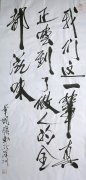 我们这一辈真
正嚐到了做人的全
部滋味